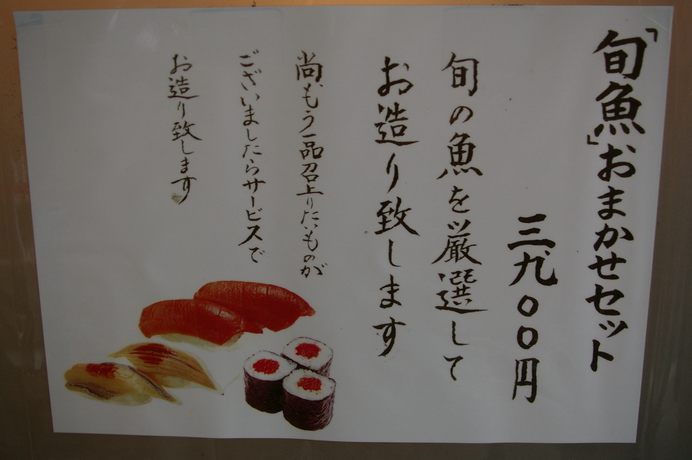 「旬魚」おまかせセット
三九〇〇円
旬の魚を厳選して
お造り致します
尚、もう一品召上りたいものが
ございましたらサービスで
お造り致します